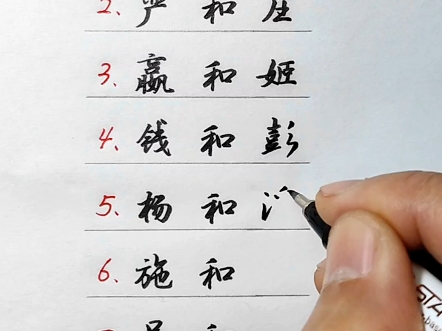 2、严和庄
3、嬴和姬
4、钱和彭
5、杨和
6、施和